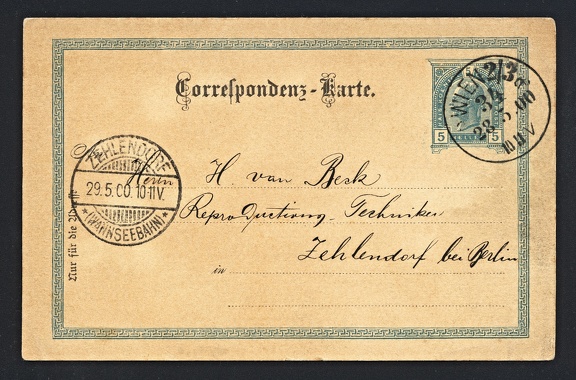 Correspondenz-Karte.
WIEN 2/3
28.5.00
10 11 V
5 5
ZEHLENDORF
29.5.00.10-11V.
*(WANNSEEBAHN)*
Herrn
H. van Beek
Reproductions-Techniker
Zehlendorf bei Berlin
in
Nur für die